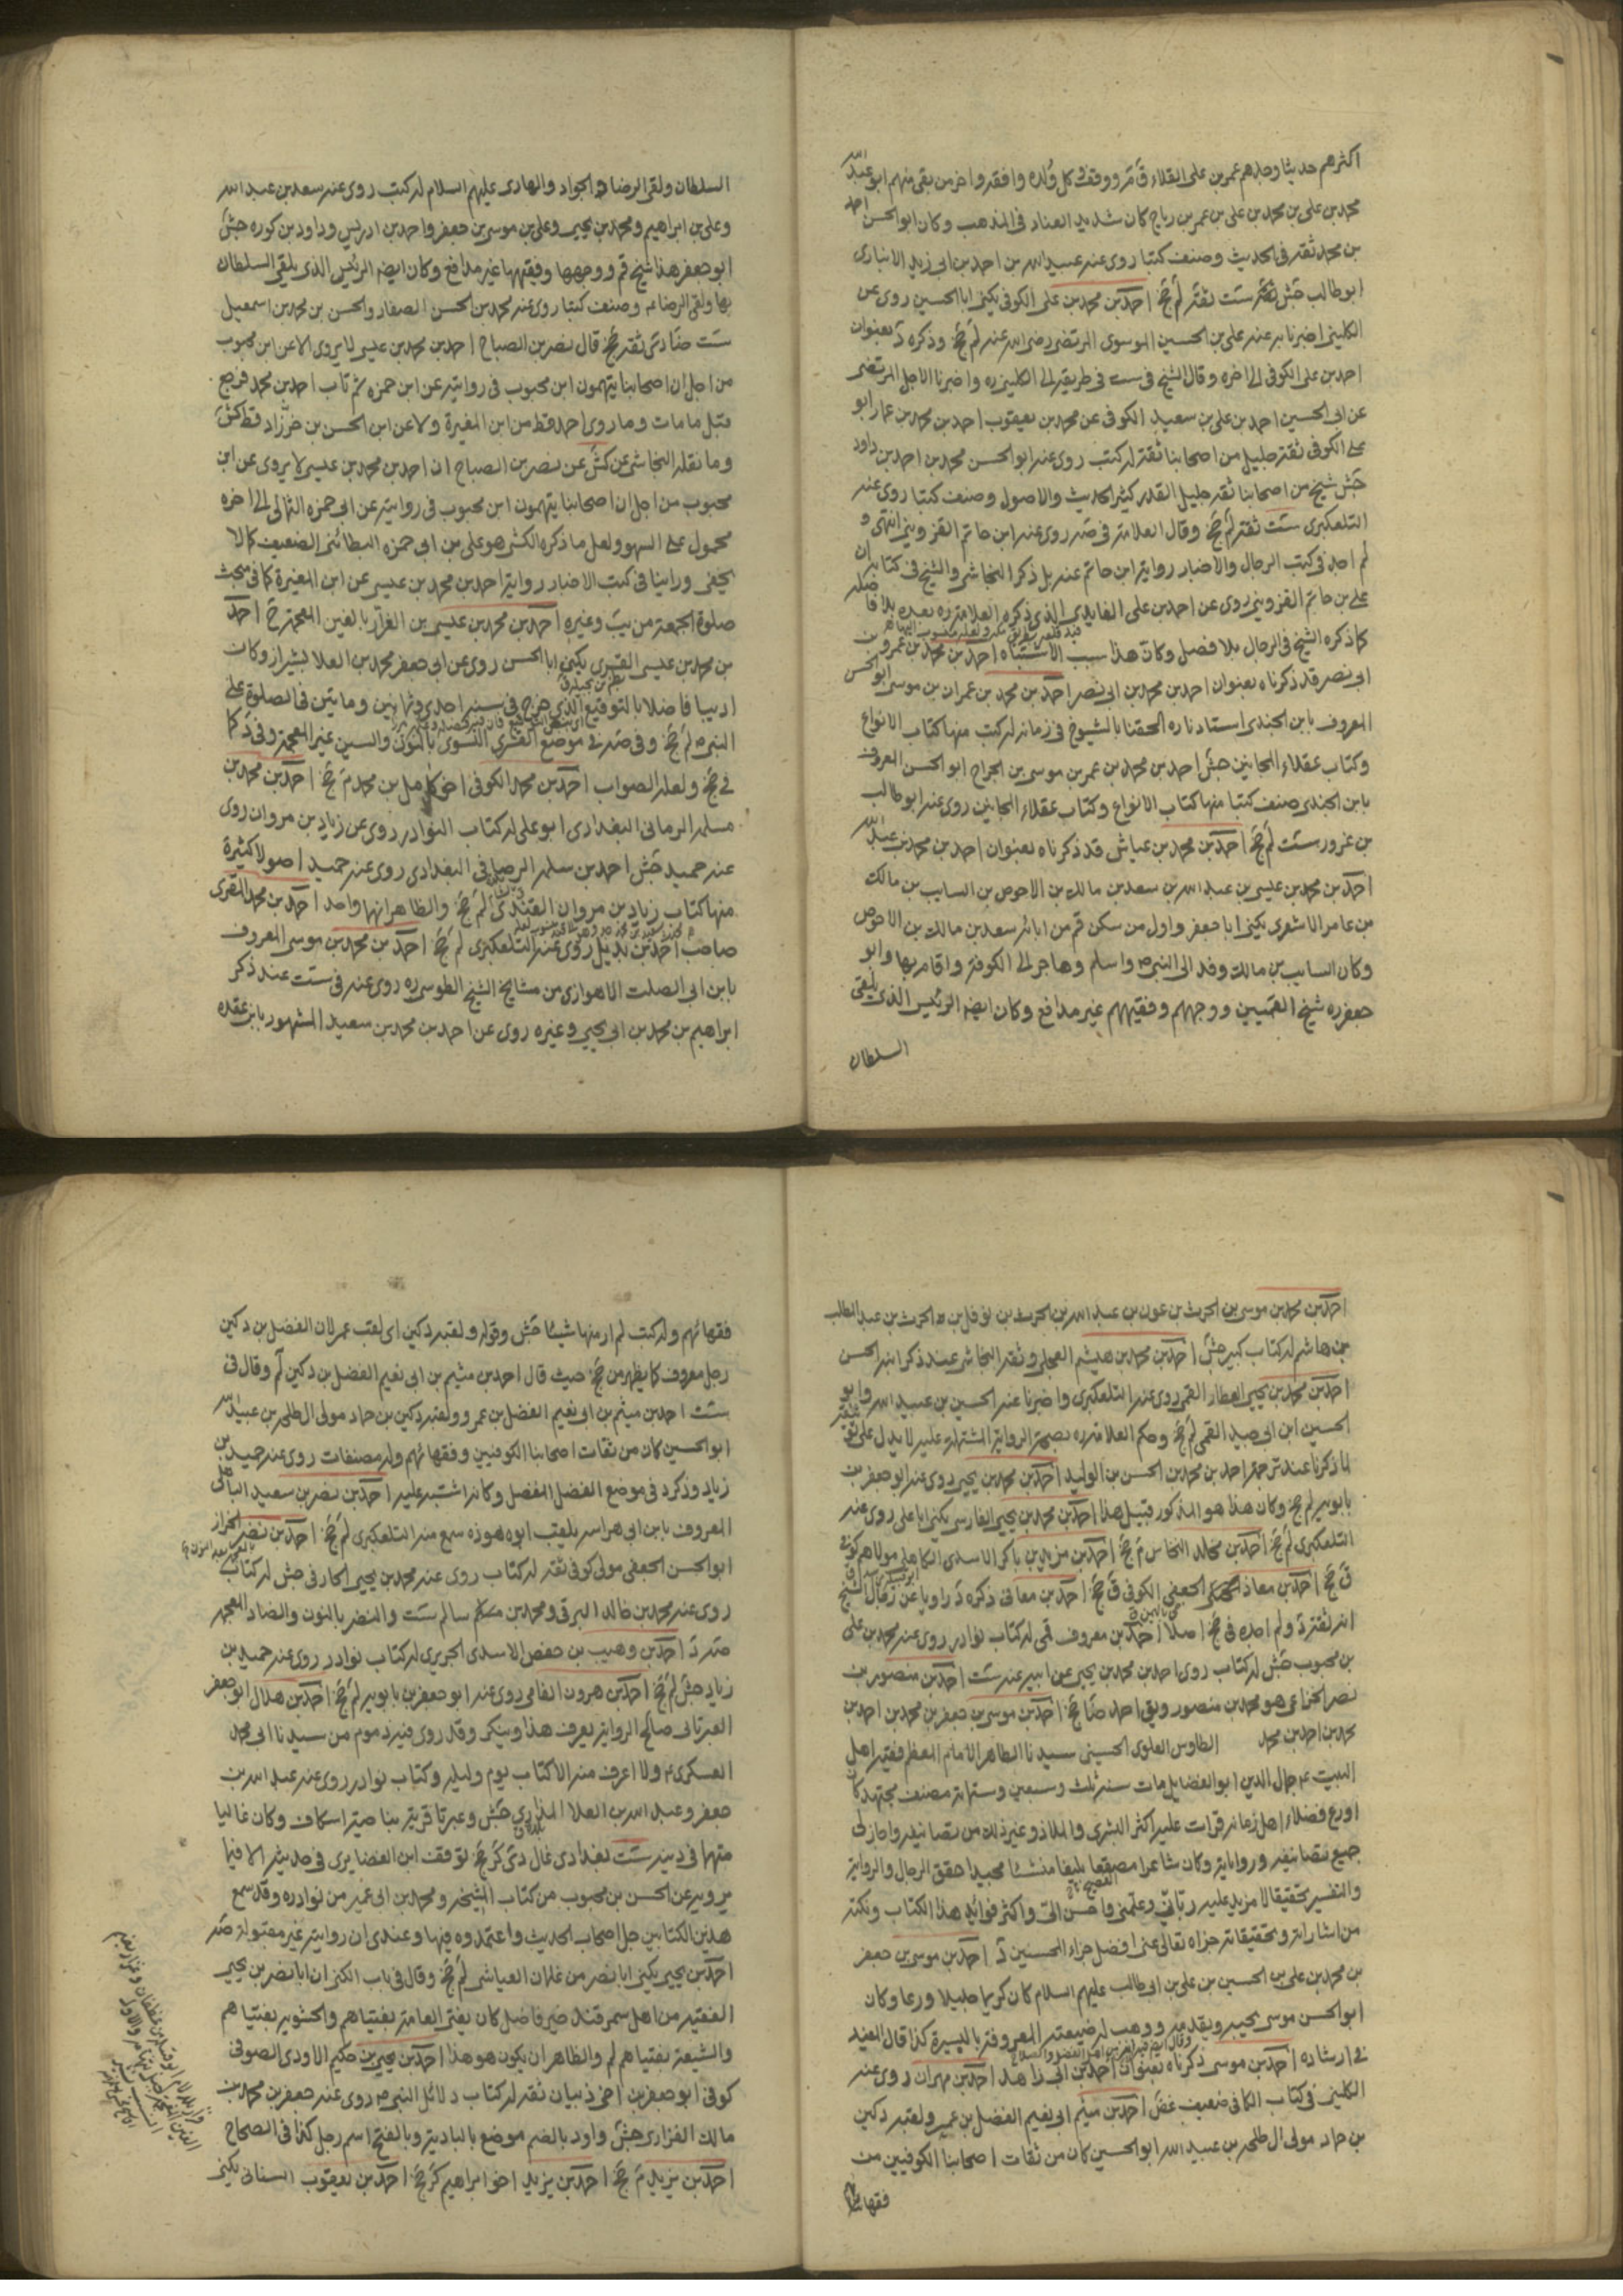 اكثرهم حديثا وجدهم عمر بن على القلاء ق م ر و وقف و كل ولده وافقه واخر من بقى منهم ابو عبد الله
محمد بن على بن محمد بن على بن عمر بن رباح كان شديد العناد فى المذهب وكان ابو الحسن احمد
بن محمد ثقة فى الحديث وصنف كتبا روى عنه عبيد الله بن احمد بن ابى زيد الانبارى
ابو طالب جش ست ثقة لم جخ احمد بن محمد بن على الكوفى يكنى ابا الحسين روى عن
الكلينى اخبرنا به عنه على بن الحسين الموسوى المرتضى رضى الله عنه لم جخ وذكره د بعنوان
احمد بن على الكوفى الى اخره وقال الشيخ فى ست فى طريقه الى الكلينى ره واخبرنا الاجل المرتضى
عن ابى الحسين احمد بن على بن سعيد الكوفى عن محمد بن يعقوب احمد بن محمد بن عمار ابو
على الكوفى ثقة جليل من اصحابنا ثقة له كتب روى عنه ابو الحسن محمد بن احمد بن داود
جش شيخ من اصحابنا ثقة جليل القدر كثير الحديث والاصول وصنف كتبا روى عنه
التلعكبرى ست ثقة لم جخ وقال العلامة فى صه روى عنه ابن حاتم القزوينى انتهى و
لم اجد فى كتب الرجال والاخبار رواية ابن حاتم عنه بل ذكر النجاشى والشيخ فى كتابه ان
على بن حاتم القزوينى روى عن احمد بن على الفايدى الذى ذكره العلامة ره بعده بلا فاصلة
كما ذكره الشيخ فى الرجال بلا فصل وكان هذا سبب الاشتباه احمد بن محمد بن عمرو بن
ابى نصر قد ذكرناه بعنوان احمد بن محمد بن ابى نصر احمد بن محمد بن عمران بن موسى ابو الحسن
المعروف بابن الجندى استادنا ره الحقنا بالشيوخ فى زمانه له كتب منها كتاب الانواع
وكتاب عقلاء المجانين جش احمد بن محمد بن عمر بن موسى بن الجراح ابو الحسن المعروف
بابن الجندى صنف كتبا منها كتاب الانواع وكتاب عقلاء المجانين روى عنه ابو طالب
بن غرور ست لم جخ احمد بن محمد بن عياش قد ذكرناه بعنوان احمد بن محمد بن عبد الله
احمد بن محمد بن عيسى بن عبد الله بن سعد بن مالك بن الاحوص بن السايب بن مالك
بن عامر الاشعرى يكنى ابا جعفر واول من سكن قم من ابائه سعد بن مالك بن الاحوص
وكان السايب بن مالك وفد الى النبى ص واسلم وهاجر الى الكوفة واقام بها وابو
جعفر ره شيخ القميين ووجههم وفقيههم غير مدافع وكان ايضا الرئيس الذى يلقى
السلطان
السلطان ولقى الرضا و الجواد والهادى عليهم السلام له كتب روى عنه سعد بن عبد الله
وعلى بن ابراهيم ومحمد بن يحيى وعلى بن موسى بن جعفر واحمد بن ادريس وداود بن كوره جش
ابو جعفر هذا شيخ قم ووجهها وفقيهها غير مدافع وكان ايضا الرئيس الذى يلقى السلطان
بها ولقى الرضا ع وصنف كتبا روى عنه محمد بن الحسن الصفار والحسن بن محمد بن اسمعيل
ست ضا دى ثقة جخ قال نصر بن الصباح احمد بن محمد بن عيسى لا يروى الا عن ابن محبوب
من اجل ان اصحابنا يتهمون ابن محبوب فى روايته عن ابن حمزه ثم تاب احمد بن محمد فرجع
قبل ما مات وما روى احمد قط من ابن المغيرة ولا عن ابن الحسن بن خرزاد قط كش
وما نقله النجاشى عن كش عن نصر بن الصباح ان احمد بن محمد بن عيسى لا يروى عن ابن
محبوب من اجل ان اصحابنا يتهمون ابن محبوب فى روايته عن ابى حمزه الثمالى الى اخره
محمول على السهو ولعل ما ذكره الكشى هو على بن ابى حمزه البطائنى الضعيف كما لا
يخفى وراينا فى كتب الاخبار رواية احمد بن محمد بن عيسى عن ابن المغيرة كما فى مبحث
صلوة الجمعة من يب وغيره احمد بن محمد بن عيسى بن الغراد بالغين المعجمة جخ احمد
بن محمد بن عيسى القسرى يكنى ابا الحسن روى عن ابى جعفر محمد بن العلا بشيراز وكان
اديبا فاضلا بالتوقيع الذى خرج فى سنة احدى وثمانين وماتين فى الصلوة على
النبى ص لم جخ وفى صه فى موضع القسرى النسوى بالنون والسين غير المعجمة وفى د كما
فى جخ ولعله الصواب احمد بن محمد الكوفى اخو كامل بن محمد م جخ احمد بن محمد بن
مسلمه الرمانى البغدادى ابو على له كتاب النوادر روى عن زياد بن مروان روى
عنه حميد جش احمد بن سلمه الرصافى البغدادى روى عنه حميد اصولا كثيرة
منها كتاب زياد بن مروان القندى لم جخ والظاهر انها واحد احمد بن محمد المقرى
صاحب احمد بن بديل روى عنه التلعكبرى لم جخ احمد بن محمد بن موسى المعروف
بابن ابى الصلت الاهوازى من مشايخ الشيخ الطوسى ره روى عنه فى ست عند ذكر
ابراهيم بن محمد بن ابى يحيى وغيره روى عن احمد بن محمد بن سعيد المشهور بابن عقده
احمد بن محمد بن موسى بن الحرث بن عون بن عبد الله بن الحرث بن نوفل بن الحرث بن عبد المطلب
بن هاشم له كتاب كبير جش احمد بن محمد بن هيثم العجلى وثقه النجاشى عند ذكر ابنه الحسن
احمد بن محمد بن يحيى العطار القمى روى عنه التلعكبرى واخبرنا عنه الحسين بن عبيد الله وابو
الحسين ابن ابى جيد القمى لم جخ وحكم العلامة ره بصحة الرواية المشتملة عليه لا يدل على توثيقه
لما ذكرنا عند ترجمة احمد بن محمد بن الحسن بن الوليد احمد بن محمد بن يحيى روى عنه ابو جعفر بن
بابويه لم جخ وكان هذا هو المذكور قبيل هذا احمد بن محمد بن يحيى الفارسى يكنى ابا على روى عنه
التلعكبرى لم جخ احمد بن مخلد النخاس م جخ احمد بن مزيد بن باكر الاسدى الكاهلى مولاهم كوفى
ق جخ احمد بن معاذ الجعفى الكوفى ق جخ احمد بن معافى ذكره د راويا عن رجال الشيخ
انه ثقة د ولم اجده فى جخ اصلا احمد بن معروف قمى له كتاب نوادر روى عنه محمد بن على
بن محبوب جش له كتاب روى احمد بن محمد بن يحيى عن ابيه عنه ست احمد بن منصور بن
نصر الخزاعى هو محمد بن منصور ويق احمد ضا جخ احمد بن موسى بن جعفر بن محمد بن احمد بن
محمد بن احمد بن محمد الطاوس العلوى الحسينى سيدنا الطاهر الامام المعظم فقيه اهل
البيت ع جمال الدين ابو الفضايل مات سنة ثلث وسبعين وستمائة مصنف مجتهد كان
اورع فضلاء اهل زمانه قرات عليه اكثر البشرى والملاذ وغير ذلك من تصانيفه واجاز لى
جميع تصانيفه ورواياته وكان شاعرا مصقعا بليغا منشئا مجيدا حقق الرجال والرواية
والتفسير تحقيقا لا مزيد عليه ربانى وعلمنى واحسن الى واكثر فوايد هذا الكتاب ونكته
من اشاراته وتحقيقاته جزاه تعالى عنى افضل جزاء المحسنين د احمد بن موسى بن جعفر
بن محمد بن على بن الحسين بن على بن ابى طالب عليهم السلام كان كريما جليلا ورعا وكان
ابو الحسن موسى يحبه ويقدمه ووهب له ضيعته المعروفة باليسيرة كذا قال المفيد
فى ارشاده احمد بن موسى ذكرناه بعنوان احمد بن ابى زاهد احمد بن مهران روى عنه
الكلينى فى كتاب الكافى ضعيف غض احمد بن ميثم ابى نعيم الفضل بن عمر ولقبه دكين
بن حماد مولى ال طلحه بن عبيد الله ابو الحسين كان من ثقات اصحابنا الكوفيين من
فقهائهم
فقهائهم وله كتب لم ار منها شيئا جش وقوله ولقبه دكين اى لقب عمر لان الفضل بن دكين
رجل معروف كما يظهر من جخ حيث قال احمد بن ميثم بن ابى نعيم الفضل بن دكين لم وقال فى
ست احمد بن ميثم بن ابى نعيم الفضل بن عمرو ولقبه دكين بن حماد مولى ال طلحه بن عبيد الله
ابو الحسين كان من ثقات اصحابنا الكوفيين وفقهائهم وله مصنفات روى عنه حميد بن
زياد وذكره د فى موضع الفضل المفضل وكانه اشتبه عليه احمد بن نصر بن سعيد الباهلى
المعروف بابن ابى هراسه يلقب ابوه هوذه سمع منه التلعكبرى لم جخ احمد بن نضر الخزاز
ابو الحسن الجعفى مولى كوفى ثقة له كتاب روى عنه محمد بن يحيى الحازى جش له كتاب
روى عنه محمد بن خالد البرقى ومحمد بن سالم ست والنضر بالنون والضاد المعجمه
صه د احمد بن وهيب بن حفص الاسدى الجريرى له كتاب نوادر روى عنه حميد بن
زياد جش لم جخ احمد بن هرون الفامى روى عنه ابو جعفر بن بابويه لم جخ احمد بن هلال ابو جعفر
العبرتائى صالح الرواية يعرف هذا وينكر وقد روى فيه ذموم من سيدنا ابى محمد
العسكرى ع ولا اعرف منه الا كتاب يوم وليله وكتاب نوادر روى عنه عبد الله بن
جعفر وعبد الله بن العلا المذارى جش وعبرتا قرية بناحية اسكاف وكان غاليا
متهما فى دينه ست بغدادى غال دى كر جخ توقف ابن الغضايرى فى حديثه الا فيما
يرويه عن الحسن بن محبوب من كتاب المشيخه ومحمد بن ابى عمير من نوادره وقد سمع
هذين الكتابين جل اصحاب الحديث واعتمدوه فيها وعندى ان روايته غير مقبولة صه
احمد بن يحيى يكنى ابا نصر من غلمان العياشى لم جخ وقال فى باب الكنى ان ابا نصر بن يحيى
الفقيه من اهل سمرقند خير فاضل كان يفتى العامة بفتياهم والحشويه بفتياهم
والشيعة بفتياهم لم والظاهر ان يكون هو هذا احمد بن يحيى بن حكيم الاودى الصوفى
كوفى ابو جعفر بن اخى ذبيان ثقة له كتاب دلائل النبى ص روى عنه جعفر بن محمد بن
مالك الفزارى جش واود بالضم موضع بالبادية وبالفتح اسم رجل كذا فى الصحاح
احمد بن يزيد م جخ احمد بن يزيد اخو ابراهيم كر جخ احمد بن يعقوب السنائى يكنى